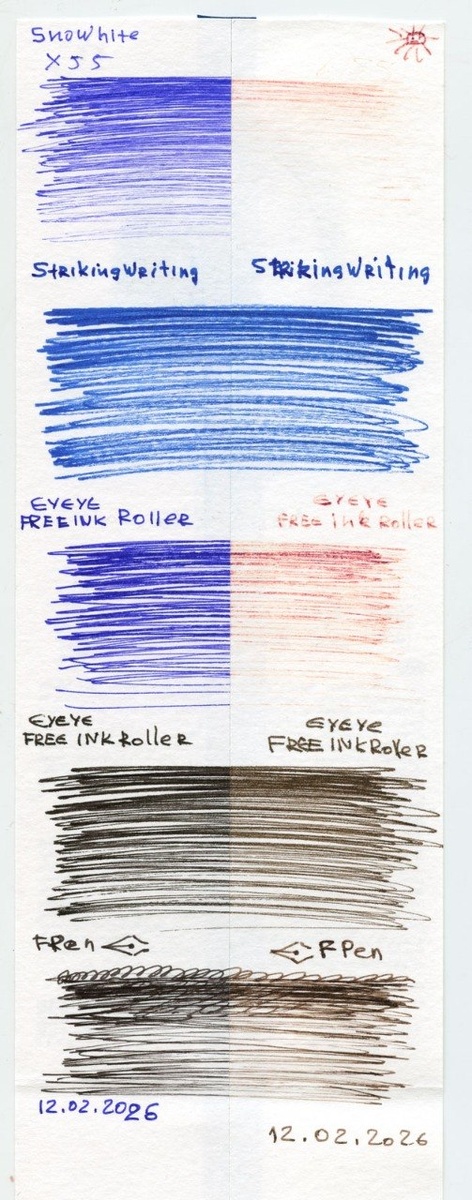 SnoWhite
X55
StRikingWRiting
StRikingWRiting
EYEYE
FREEINK Roller
EYEYE
FREE ink Roller
EYEYE
FREE INKRolleR
EYEYE
FREE INKRoller
FPen
FPen
12.02.2026
12.02.2026